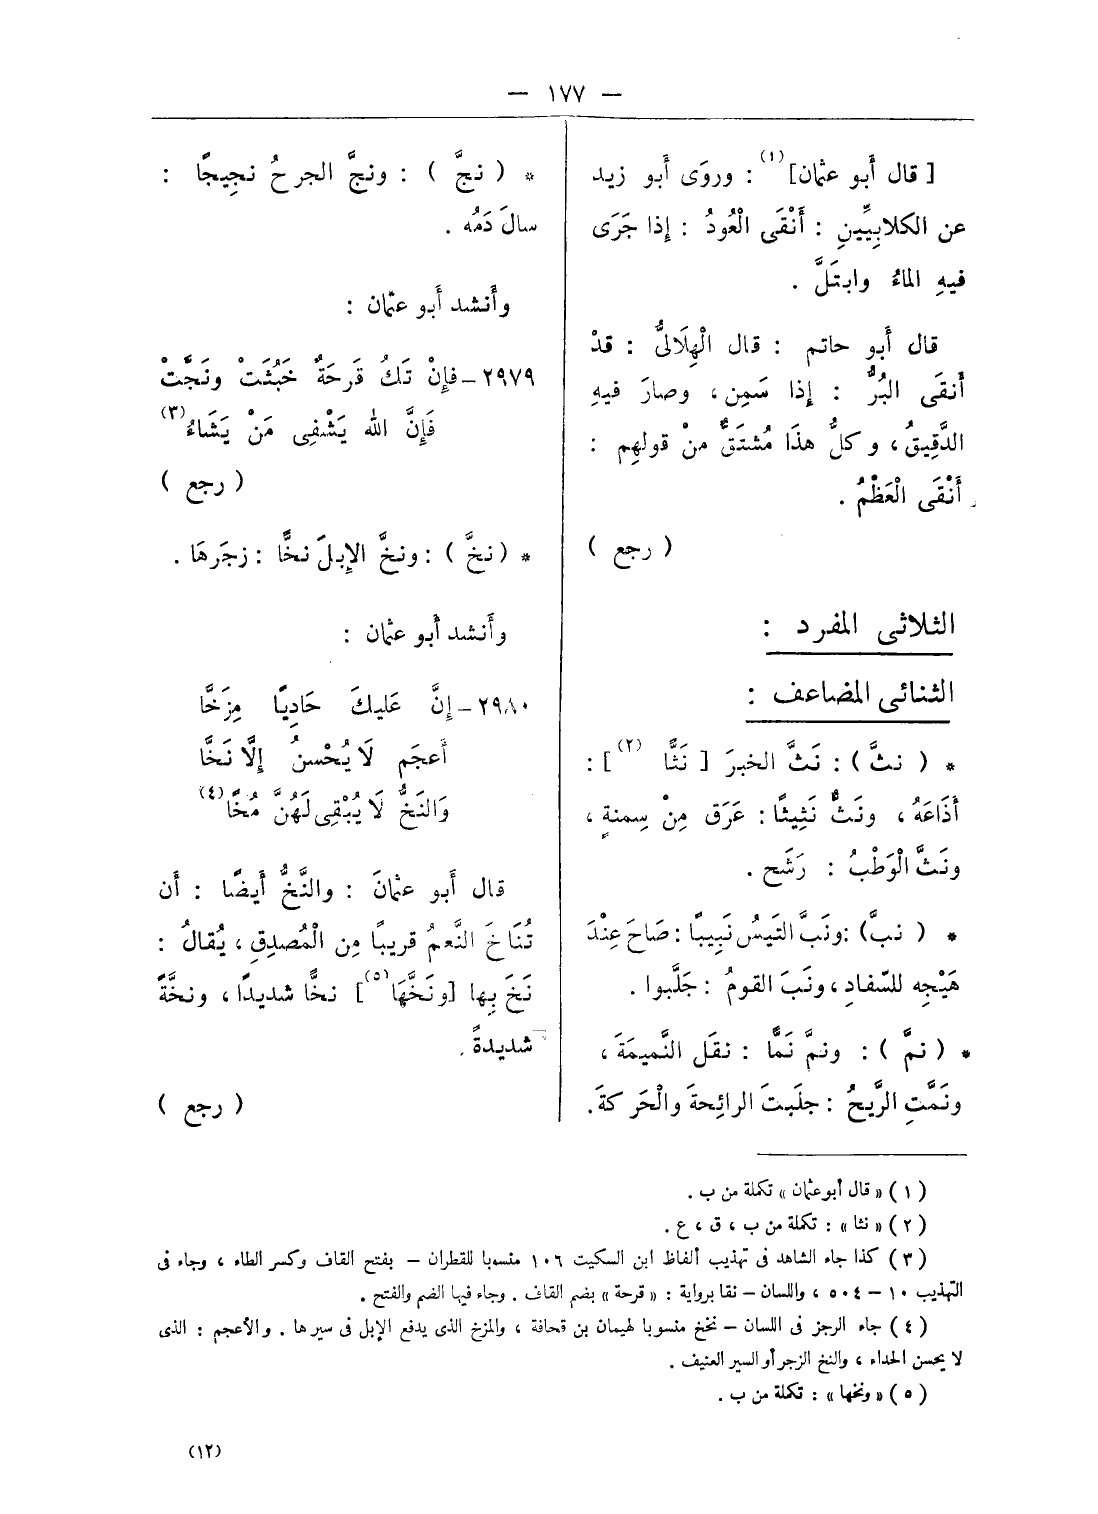 — ١٧٧ —
[ قال أَبو عثمان](١) : وروَى أَبو زيد
عن الكلابِيِّينِ : أَنْقَى الْعُودُ : إِذا جَرَى
فيهِ الماءُ وابتَلَّ .
قال أَبو حاتم : قال الْهِلَالىُّ : قدْ
أَنقَى البُرُّ : إِذا سَمِن ، وصارَ فيهِ
الدَّقِيقُ ، وكلُّ هذَا مُشتَقٌّ منْ قولهِم :
أَنْقَى الْعَظْمُ .
( رجع )
الثلاثى المفرد :
الثنائى المضاعف :
* ( نثَّ ) : نَثَّ الخبرَ [ نَثًّا (٢) ] :
أَذَاعَهُ ، ونَثَّ نَثِيثًا : عَرَق مِنْ سِمنةٍ ،
ونَثَّ الْوَطْبُ : رَشَح .
* ( نبَّ) : ونَبَّ التَيسُ نَبِيبًا : صَاحَ عِنْدَ
هَيْجِه للسِّفادِ ، ونَبَ القومُ : جَلَّبوا .
* ( نمَّ ) : ونمَّ نَمًّا : نقَل النَّميمَةَ ،
ونَمَّتِ الرِّيحُ : جلَبتَ الرائِحةَ والْحَركةَ.
* ( نجَّ ) : ونجَّ الجرحُ نجِيجًا :
سالَ دَمُه .
وأَنشد أَبو عثمان :
٢٩٧٩ – فإِنْ تَكُ قَرحَةٌ خَبُثَتْ ونَجَّتْ
فَإِنَّ الله يَشْفِى مَنْ يَشَاءُ(٣)
( رجع )
* ( نخَّ ) : ونخَّ الإِبلَ نخًّا : زجَرهَا .
وأَنشد أَبو عثمان :
٢٩٨٠ – إِنَّ عَليكَ حَادِيًا مِزَخَّا
أَعجَم لَا يُحْسنُ إِلَّا نَخَّا
وَالنَخُّ لَا يُبْقِى لَهُنَّ مُخَّا(٤)
قال أَبو عثمانَ : والنَّخُّ أَيضًا : أَن
تُنَاخَ النَّعمُ قريبًا مِن الْمُصدِقِ ، يُقالُ :
نَخَ بِها [ونَخَّهَا(٥)] نخًّا شديدًا ، ونخَّةً
شديدةً .
( رجع )
( ١ ) « قال أبوعثمان » تكملة من ب .
( ٢ ) « نثا » : تكملة من ب ، ق ، ع .
( ٣ ) كذا جاء الشاهد فى تهذيب ألفاظ ابن السكيت ١٠٦ منسوبا للقطران – بفتح القاف وكسر الطاء ، وجاء فى
التهذيب ١٠ – ٥٠٤ ، واللسان – نقا برواية : « قرحة » بضم القاف . وجاء فيها الضم والفتح .
( ٤ ) جاء الرجز فى اللسان – نخخ منسوبا لهيمان بن قحافة ، والمزخ الذى يدفع الإبل فى سيرها . والأعجم : الذى
لا يحسن الحداء ، والنخ الزجر أو السير العنيف .
( ٥ ) « ونخها » : تكملة من ب .
(١٢)